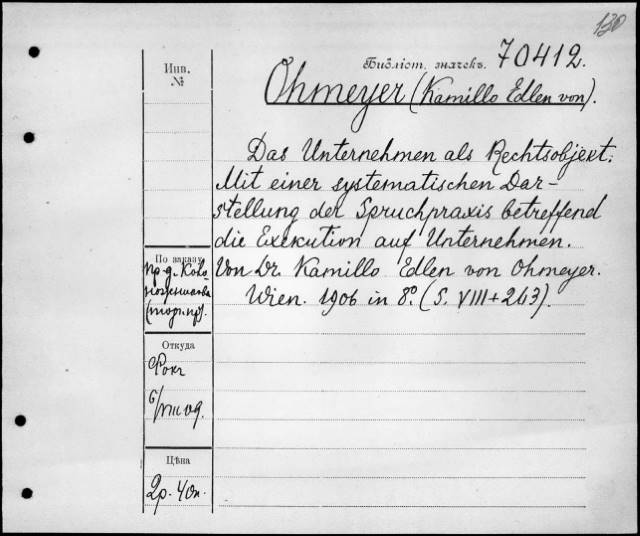 130
Библіот. значекъ. 70412.
Инв.
№
Ohmeyer (Kamillo Edlen von).
Das Unternehmen als Rechtsobjekt.
Mit einer systematischen Dar-
stellung der Spruchpraxis betreffend
die Exekution auf Unternehmen.
Von Dr. Kamillo Edlen von Ohmeyer.
Wien. 1906 in 8º. (S. VIII + 263).
По заказу
(торг. пр).
Откуда
Рокг
6/VIII 09.
Цѣна
2р. 40к.